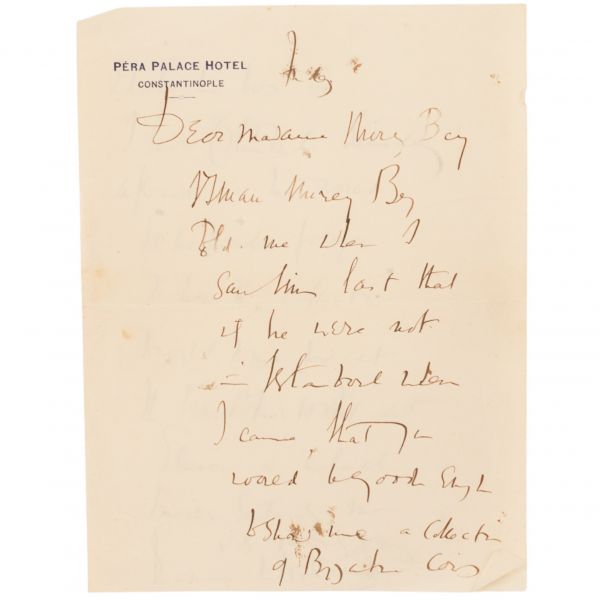 PÉRA PALACE HOTEL
CONSTANTINOPLE
Dear Madame Bey
Bey
told me when I
saw him last that
if he were not
in Istanboul when
I came, that you
would be good enough
to show me a collection
of Byzantine Coins